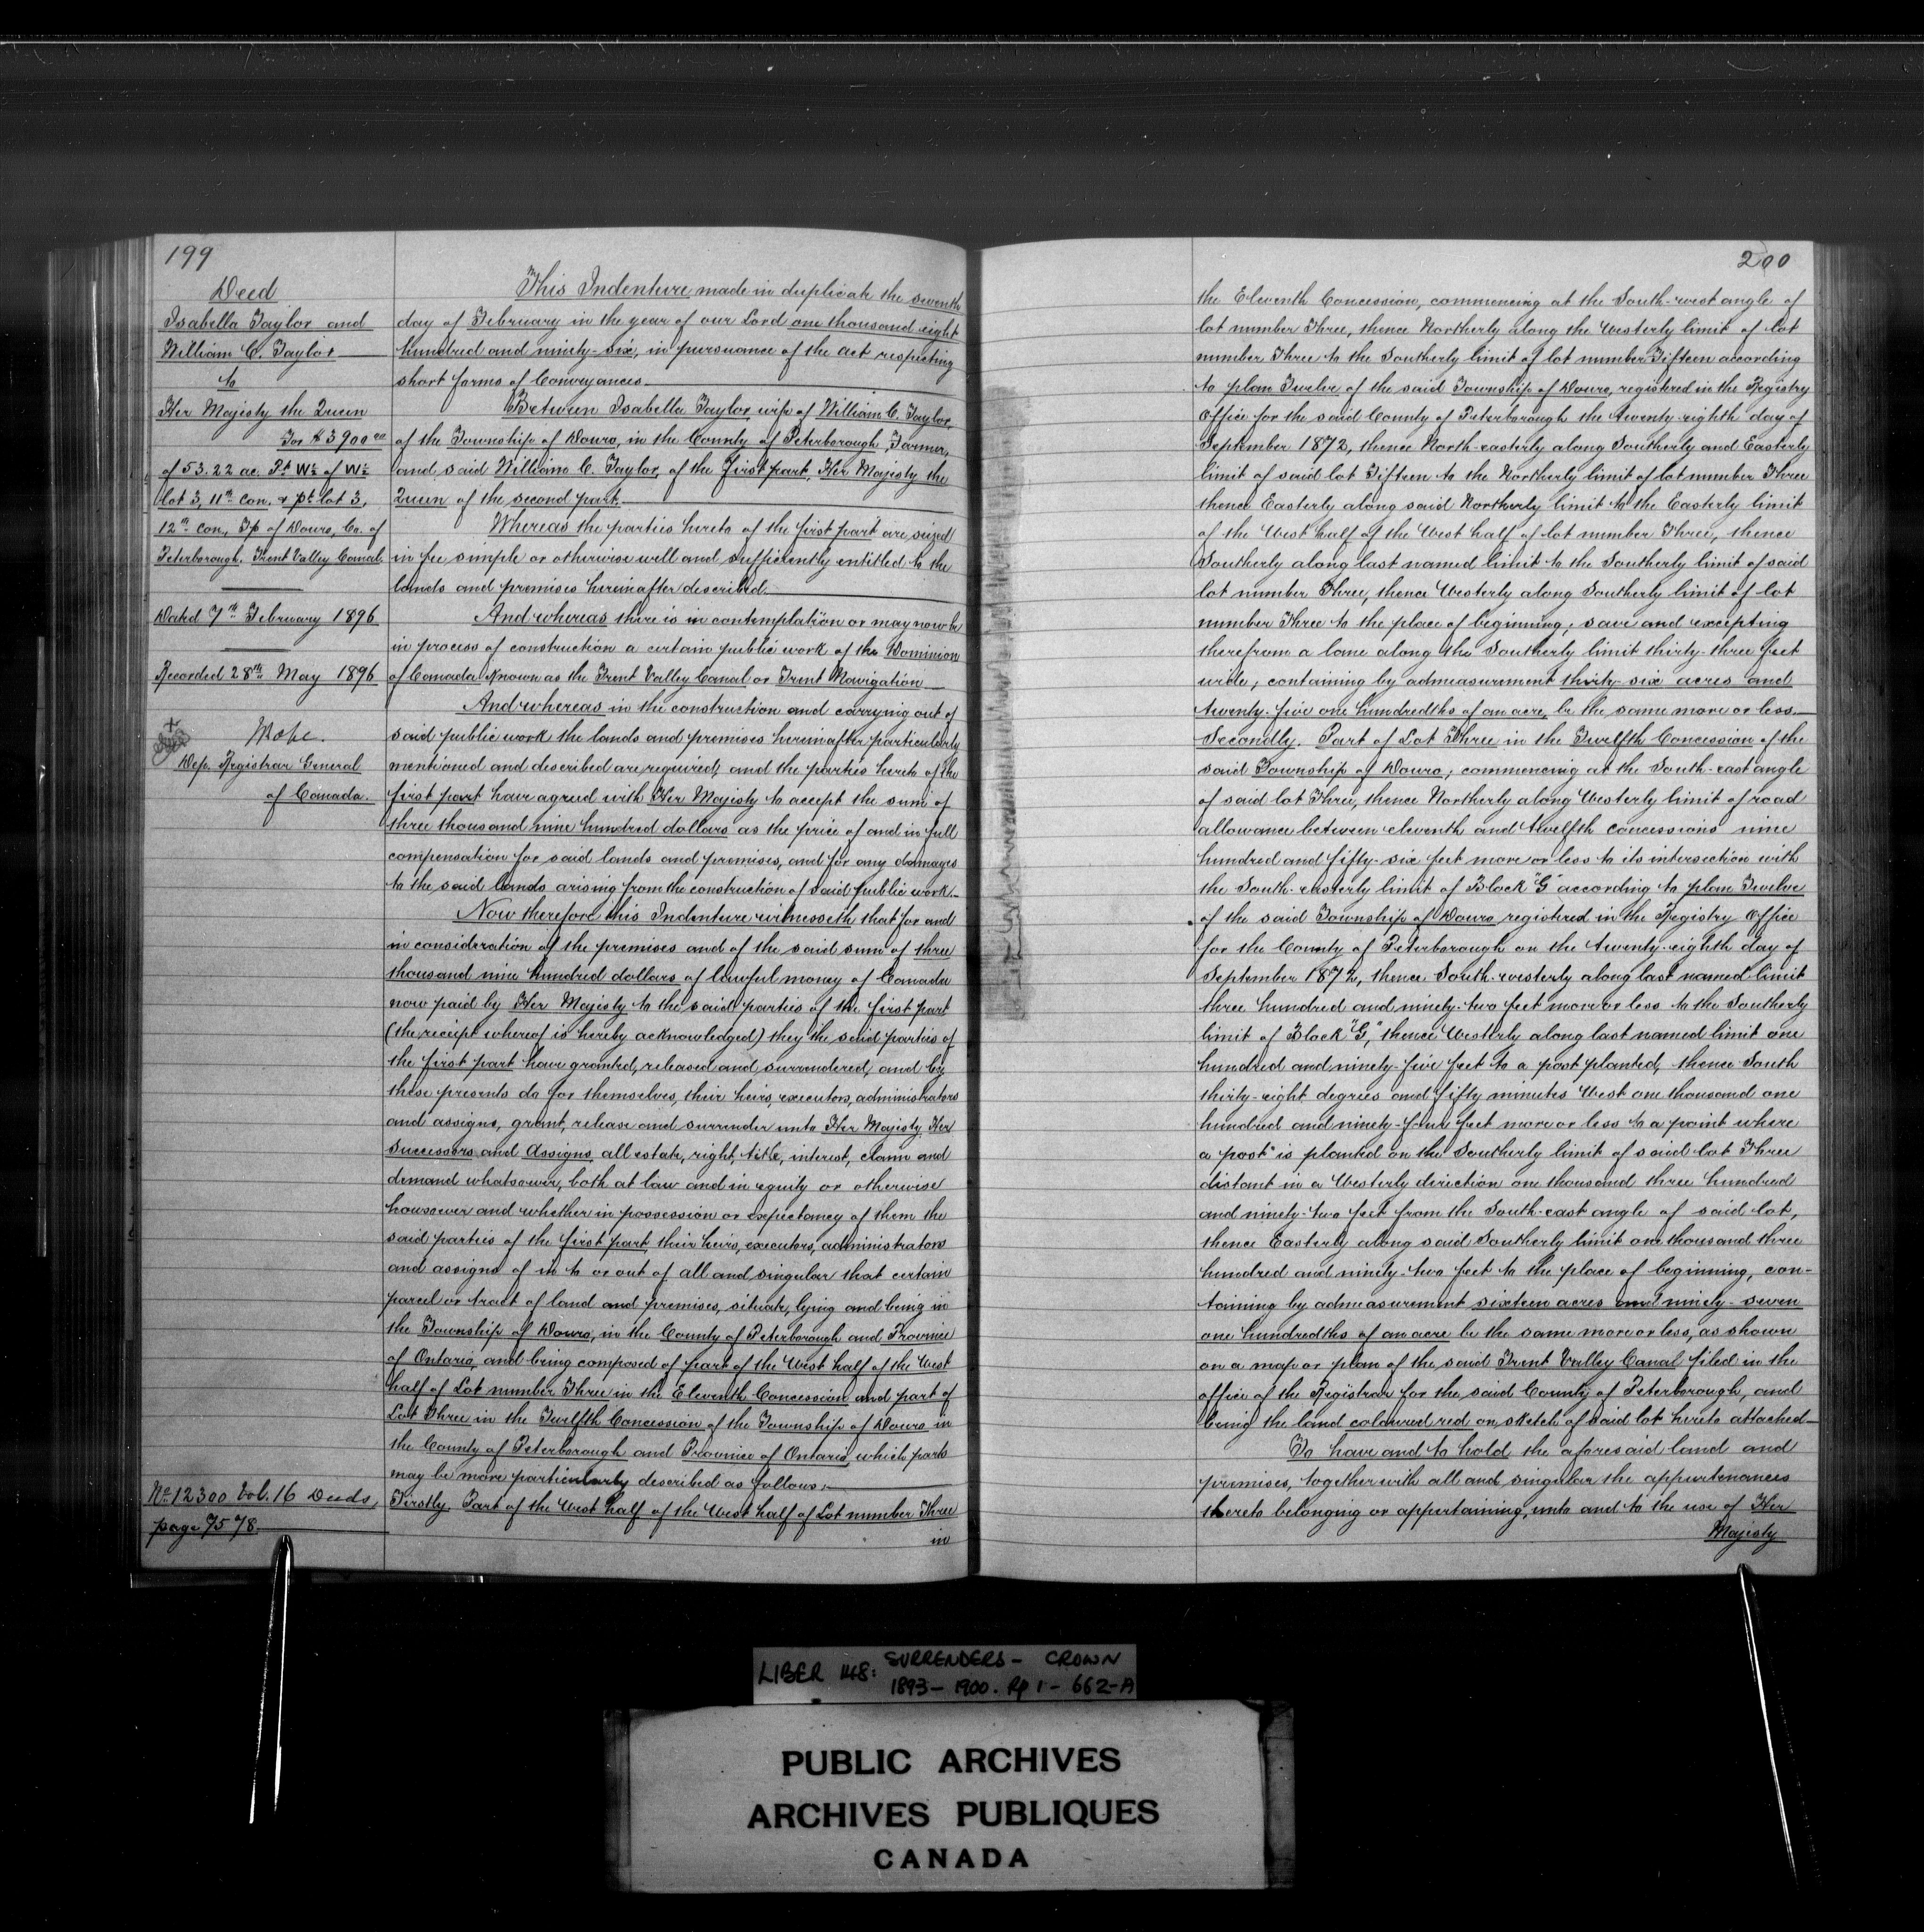 199
Deed
Isabella Taylor and
William C. Taylor
to
Her Majesty the Queen
For $3900.00
of 53.22 ac. Pt W½ of W½
lot 3, 11th con. & pt lot 3,
12th con., Tp of Douro, Co. of
Peterborough. Trent Valley Canal.
Dated 7th February 1896
Recorded 28th May 1896
Dep. Registrar General
of Canada.
No 12300 Vol. 16 Deeds,
page 7578.
This Indenture made in duplicate the seventh
day of February in the year of our Lord one thousand eight
hundred and ninety-six, in pursuance of the act respecting
short forms of Conveyances
Between Isabella Taylor wife of William C. Taylor,
of the Township of Douro, in the County of Peterborough, Farmer,
and said William C. Taylor, of the first part, Her Majesty the
Queen of the second part.
Whereas the parties hereto of the first part are seized
in fee simple or otherwise well and sufficiently entitled to the
lands and premises hereinafter described.
And whereas there is in contemplation or may now be
in process of construction a certain public work of the Dominion
of Canada known as the Trent Valley Canal or Trent Navigation
And whereas in the construction and carrying out of
said public work the lands and premises hereinafter particularly
mentioned and described are required, and the parties hereto of the
first part have agreed with Her Majesty to accept the sum of
three thousand nine hundred dollars as the price of and in full
compensation for said lands and premises, and for any damages
to the said lands arising from the construction of said public work.
Now therefore this Indenture witnesseth that for and
in consideration of the premises and of the said sum of three
thousand nine hundred dollars of lawful money of Canada
now paid by Her Majesty to the said parties of the first part
(the receipt whereof is hereby acknowledged) they the said parties of
the first part have granted, released and surrendered, and by
these presents do for themselves, their heirs, executors, administrators
and assigns, grant, release and surrender unto Her Majesty, Her
Successors and Assigns, all estate, right, title, interest, claim and
demand whatsoever, both at law and in equity or otherwise
howsoever and whether in possession or expectancy of them the
said parties of the first part their heirs, executors, administrators
and assigns of in to or out of all and singular that certain
parcel or tract of land and premises, situate, lying and being in
the Township of Douro, in the County of Peterborough and Province
of Ontario, and being composed of part of the West half of the West
half of Lot number Three in the Eleventh Concession and part of
Lot Three in the Twelfth Concession of the Township of Douro in
the County of Peterborough and Province of Ontario which parts
may be more particularly described as follows:
Firstly. Part of the West half of the West half of Lot number Three
in
200
the Eleventh Concession, commencing at the South-west angle of
lot number Three, thence Northerly along the Westerly limit of lot
number Three to the Southerly limit of lot number Fifteen according
to plan Twelve of the said Township of Douro, registered in the Registry
Office for the said County of Peterborough the twenty-eighth day of
September 1872, thence North-easterly along Southerly and Easterly
limit of said lot Fifteen to the Northerly limit of lot number Three
thence Easterly along said Northerly limit to the Easterly limit
of the West half of the West half of lot number Three, thence
Southerly along last named limit to the Southerly limit of said
lot number Three, thence Westerly along Southerly limit of lot
number Three to the place of beginning; save and excepting
therefrom a lane along the Southerly limit thirty-three feet
wide; containing by admeasurement thirty-six acres and
twenty-five one hundredths of an acre, be the same more or less.
Secondly. Part of Lot Three in the Twelfth Concession of the
said Township of Douro; commencing at the South-east angle
of said lot Three, thence Northerly along Westerly limit of road
allowance between eleventh and twelfth concessions nine
hundred and fifty-six feet more or less to its intersection with
the South-easterly limit of Block "G" according to plan Twelve
of the said Township of Douro registered in the Registry Office
for the County of Peterborough on the twenty-eighth day of
September 1872, thence South-westerly along last named limit
three hundred and ninety-two feet more or less to the Southerly
limit of Block "G," thence Westerly along last named limit one
hundred and ninety-five feet to a post planted, thence South
thirty-eight degrees and fifty minutes West one thousand one
hundred and ninety-four feet more or less to a point where
a "post" is planted on the Southerly limit of said lot Three
distant in a Westerly direction one thousand three hundred
and ninety-two feet from the South-east angle of said lot,
thence Easterly along said Southerly limit one thousand three
hundred and ninety-two feet to the place of beginning, con-
taining by admeasurement sixteen acres and ninety-seven
one hundredths of an acre be the same more or less, as shown
on a map or plan of the said Trent Valley Canal filed in the
office of the Registrar for the said County of Peterborough, and
being the land coloured red on sketch of said lot hereto attached
To have and to hold the aforesaid land and
premises, together with all and singular the appurtenances
thereto belonging or appertaining, unto and to the use of Her
Majesty
LIBER 148: SURRENDERS - CROWN
1893 - 1900. Pp 1 - 662-A
PUBLIC ARCHIVES
ARCHIVES PUBLIQUES
CANADA